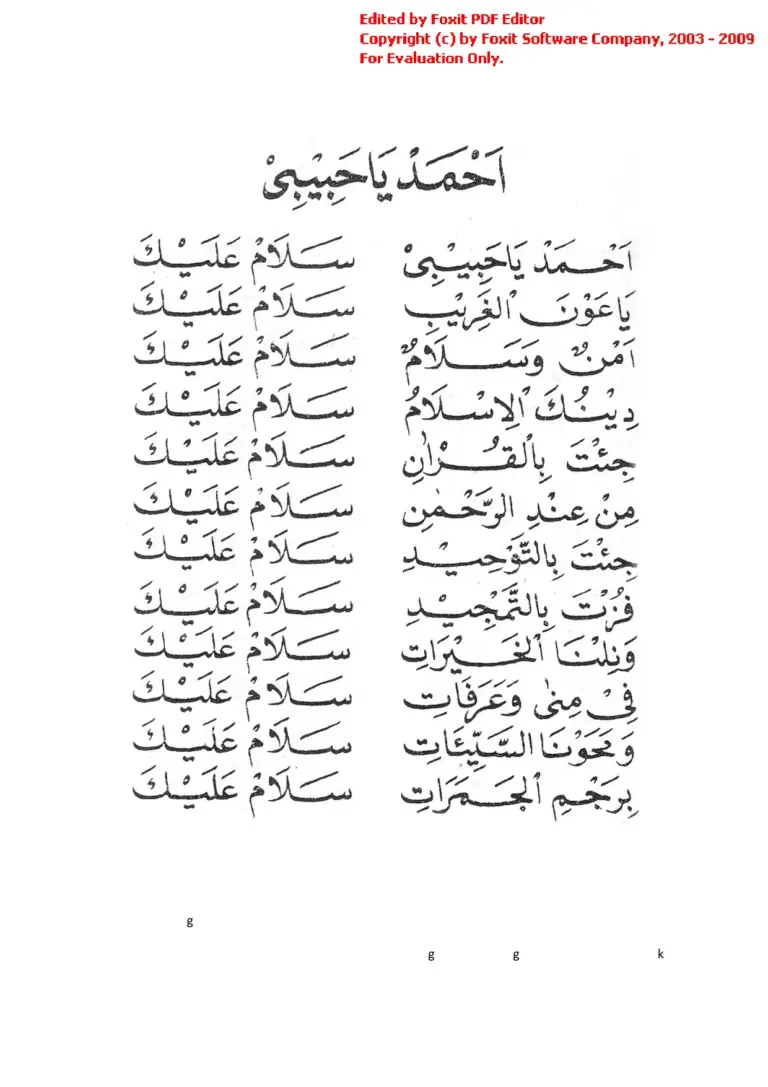 Edited by Foxit PDF Editor
Copyright (c) by Foxit Software Company, 2003 - 2009
For Evaluation Only.
اَحْمَدْ يَاحَبِيْبِىْ
اَحْمَدْ يَاحَبِيْبِىْ سَلَامْ عَلَيْكَ
يَاعَوْنَ الْغَرِيْبِ سَلَامْ عَلَيْكَ
اَمْنٌ وَسَلَامٌ سَلَامْ عَلَيْكَ
دِيْنُكَ الْاِسْلَامُ سَلَامْ عَلَيْكَ
جِئْتَ بِالْقُرْاٰنِ سَلَامْ عَلَيْكَ
مِنْ عِنْدِ الرَّحْمٰنِ سَلَامْ عَلَيْكَ
جِئْتَ بِالتَّوْحِيْدِ سَلَامْ عَلَيْكَ
فُزْتَ بِالتَّمْجِيْدِ سَلَامْ عَلَيْكَ
وَنِلْنَا الْخَيْرَاتِ سَلَامْ عَلَيْكَ
فِيْ مِنٰى وَعَرَفَاتِ سَلَامْ عَلَيْكَ
وَمَحَوْنَا السَّيِّئَاتِ سَلَامْ عَلَيْكَ
بِرَجْمِ الْجَمَرَاتِ سَلَامْ عَلَيْكَ
g
g g k